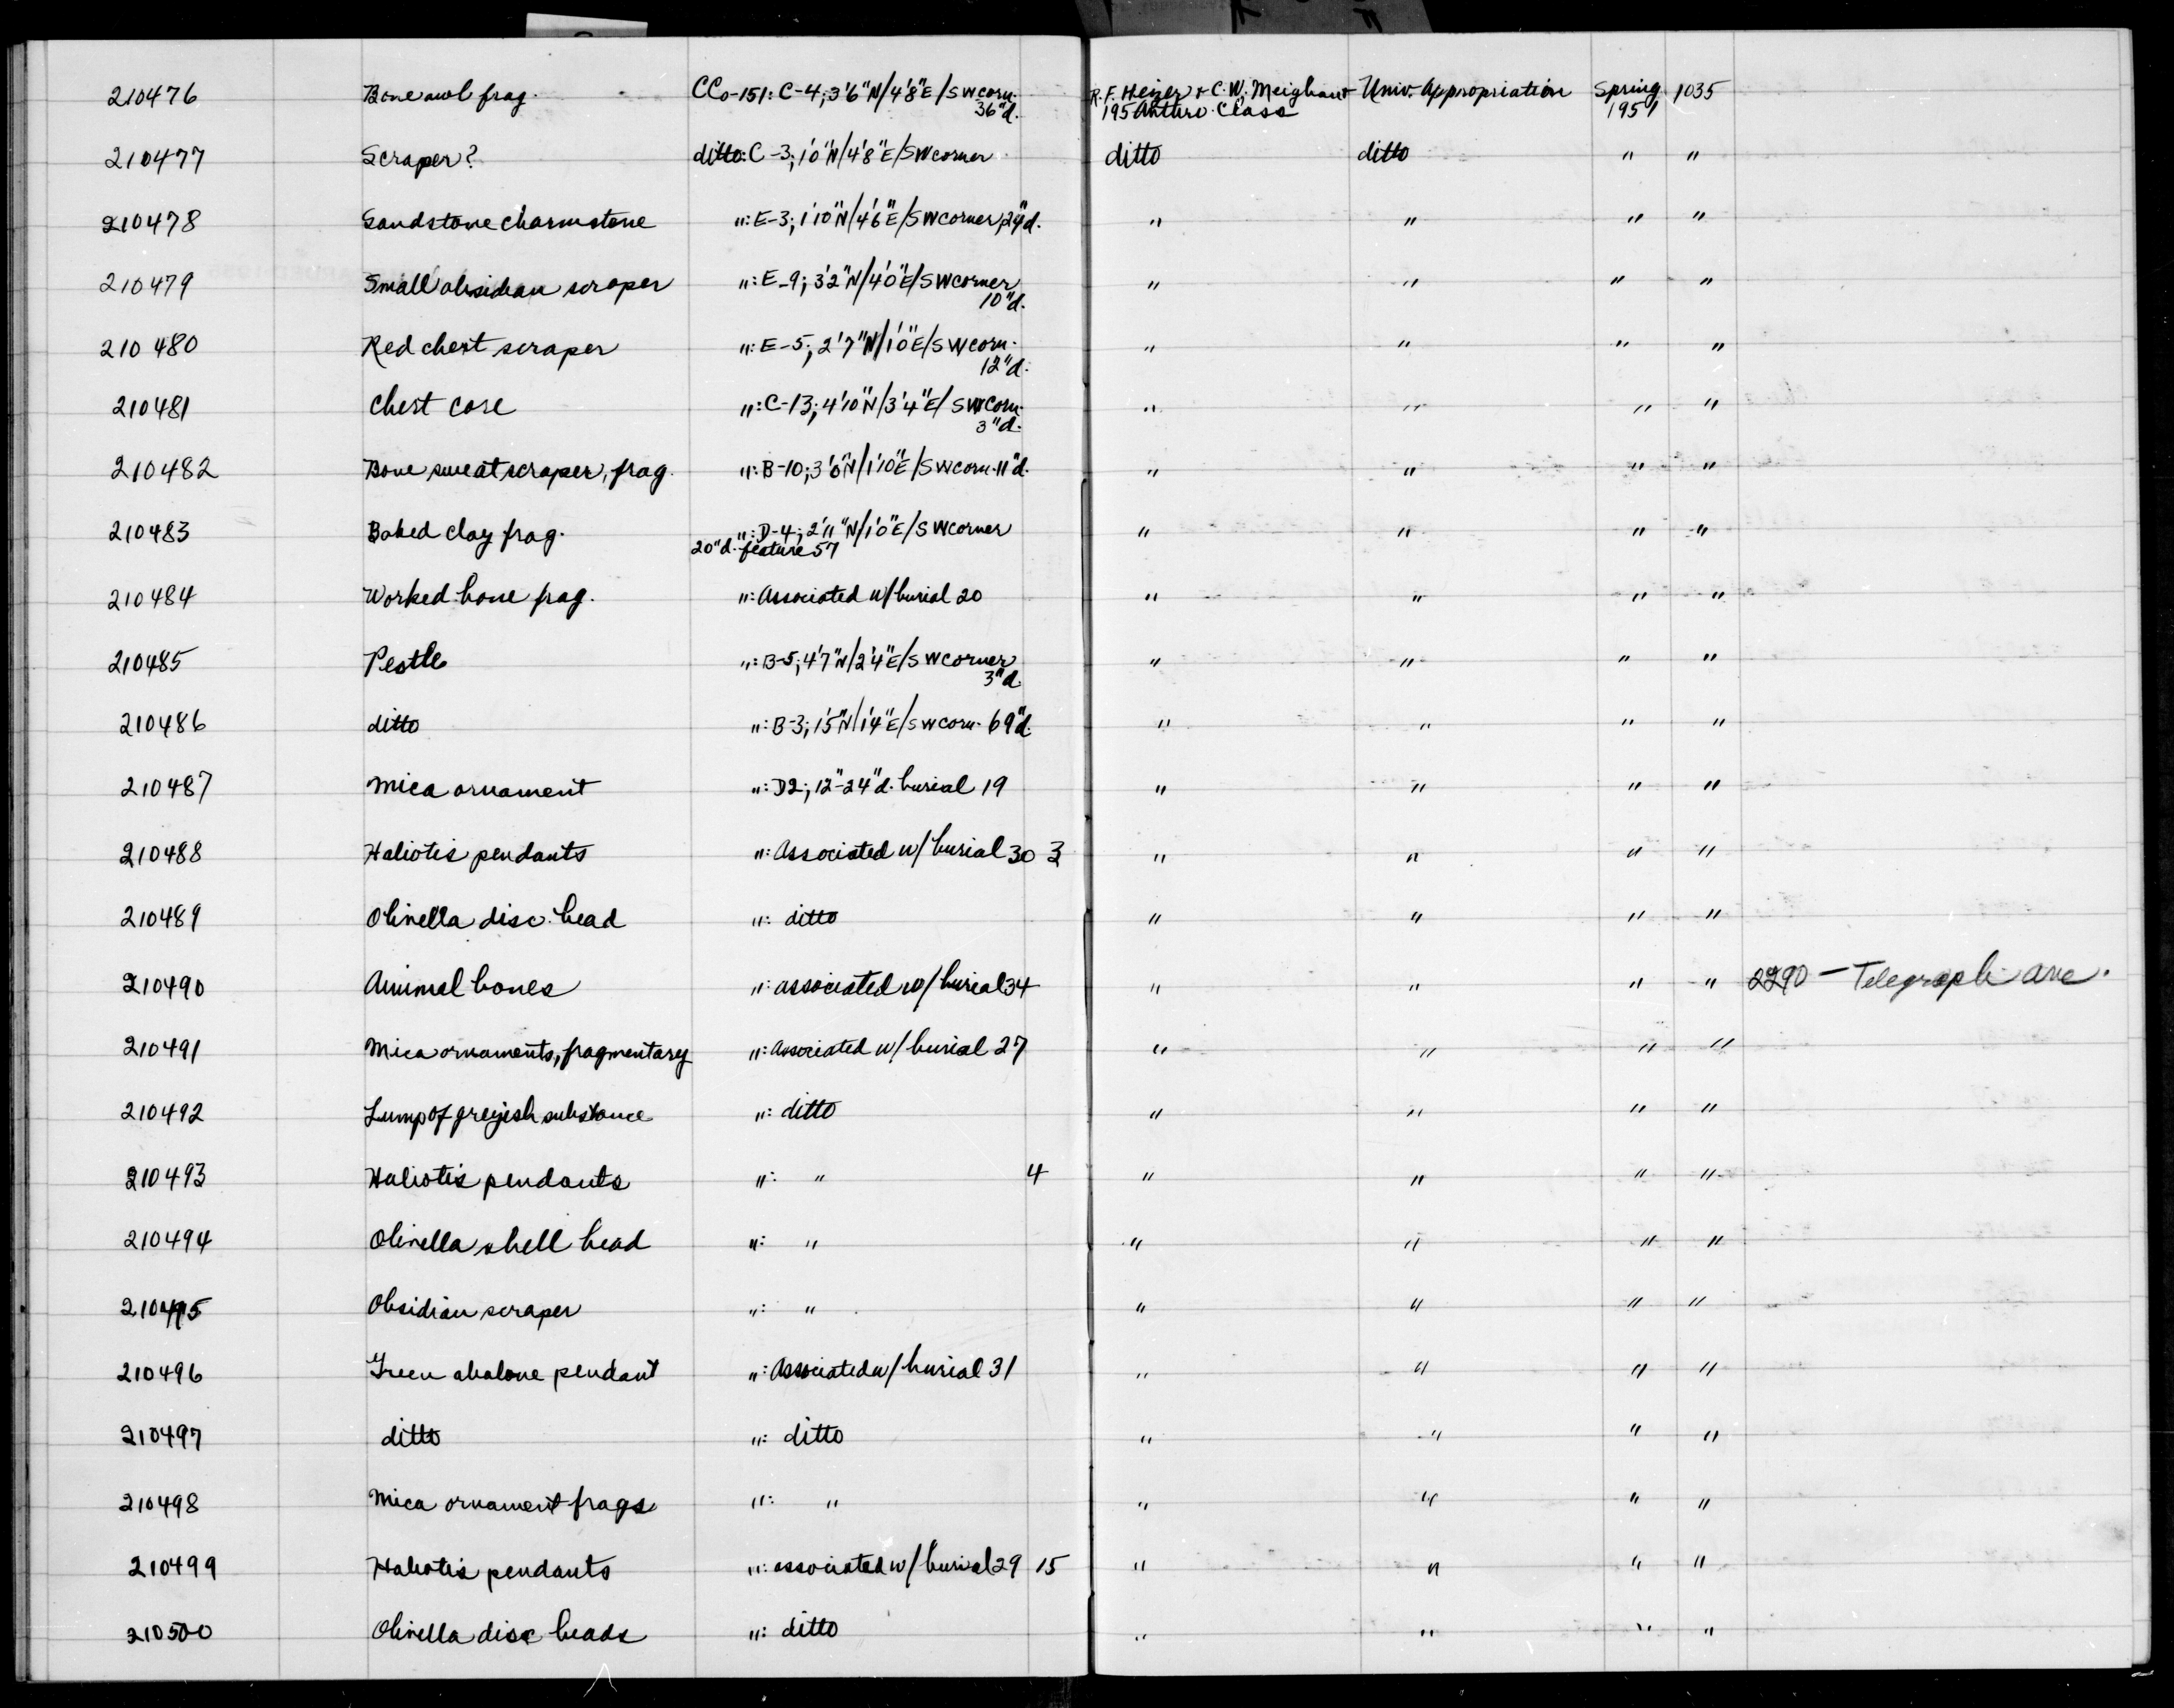 210476 Bone awl frag. CCo-151: C-4; 3'6"N/4'8"E/SW corn. 36"d. R.F. Heizer + C.W. Meighan + 195 Anthro. Class Univ. Appropriation Spring 1951 1035
210477 Scraper? ditto: C-3; 1'0"N/4'8"E/SW corner ditto ditto " "
210478 Sandstone charmstone ": E-3; 1'10"N/4'6"E/SW corner, 24"d. " " " "
210479 Small obsidian scraper ": E-9; 3'2"N/4'0"E/SW corner 10"d. " " " "
210480 Red chert scraper ": E-5; 2'7"N/1'0"E/SW corn. 12"d. " " " "
210481 Chert core ": C-13; 4'10"N/3'4"E/SW corn. 3"d. " " " "
210482 Bone sweat scraper, frag. ": B-10; 3'0"N/1'10"E/SW corn. 11"d. " " " "
210483 Baked clay frag. ": D-4; 2'11"N/1'0"E/SW corner 20"d. feature 57 " " " "
210484 Worked bone frag. ": Associated w/ burial 20 " " " "
210485 Pestle ": B-5; 4'7"N/2'4"E/SW corner 3"d. " " " "
210486 ditto ": B-3; 1'5"N/1'4"E/SW corn. 69"d. " " " "
210487 Mica ornament ": D2; 12"-24"d. burial 19 " " " "
210488 Haliotis pendants ": Associated w/ burial 30 3 " " " "
210489 Olivella disc bead ": ditto " " " "
210490 Animal bones ": associated w/ burial 34 " " " " 2290 - Telegraph ave.
210491 Mica ornaments, fragmentary ": Associated w/ burial 27 " " " "
210492 Lump of greyish substance ": ditto " " " "
210493 Haliotis pendants ": " 4 " " " "
210494 Olivella shell bead ": " " " " "
210495 Obsidian scraper ": " " " " "
210496 Green abalone pendant ": Associated w/ burial 31 " " " "
210497 ditto ": ditto " " " "
210498 Mica ornament frags ": " " " " "
210499 Haliotis pendants ": associated w/ burial 29 15 " " " "
210500 Olivella disc beads ": ditto " " " "